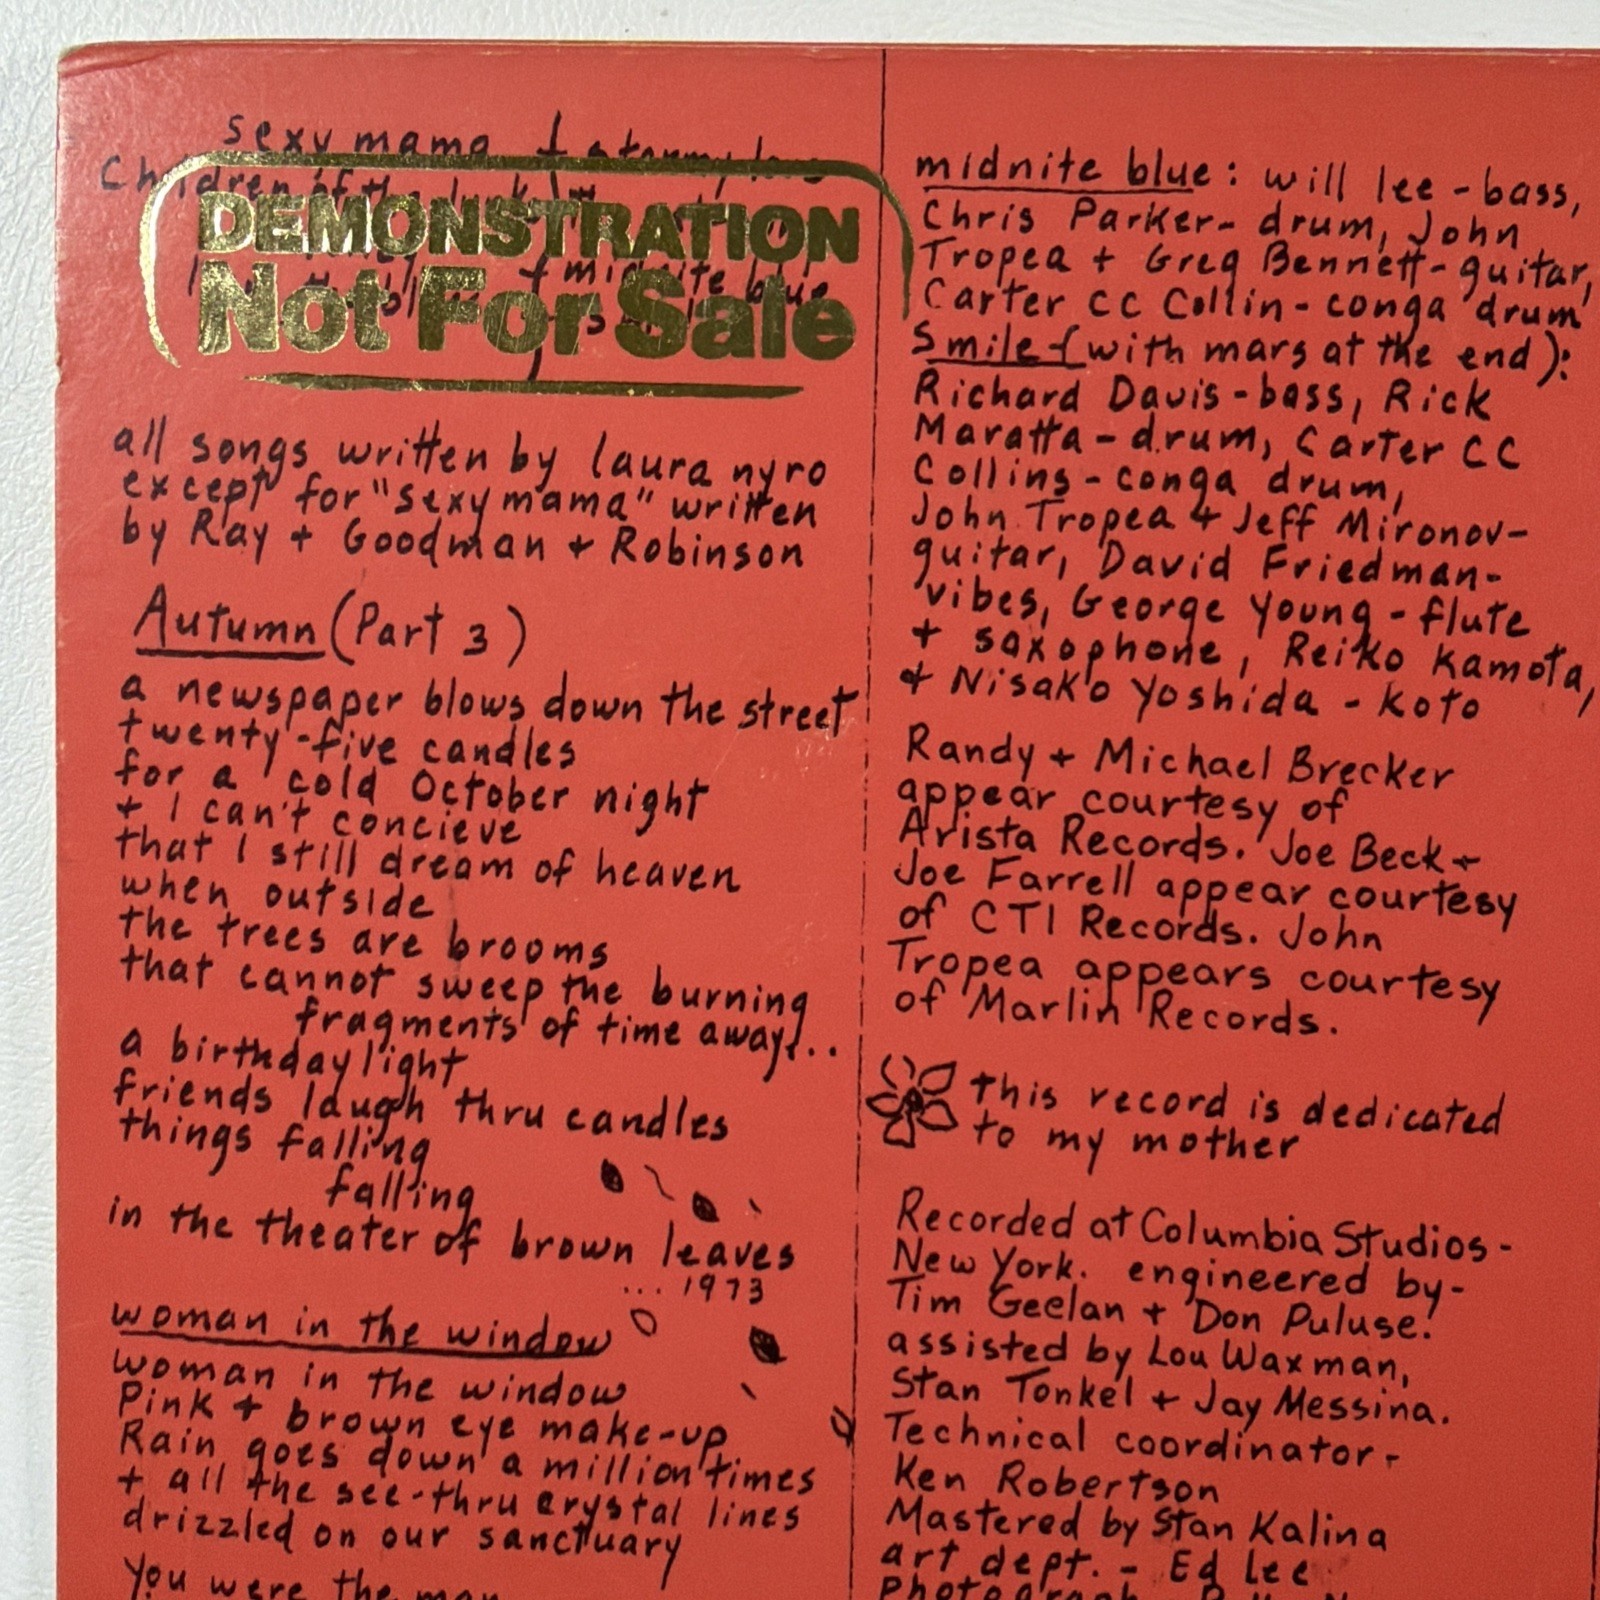 sexy mama + stormy love
Children of the
DEMONSTRATION
+ midnite blue
Not For Sale
all songs written by laura nyro
except for "sexy mama" written
by Ray + Goodman + Robinson
Autumn (Part 3)
a newspaper blows down the street
twenty-five candles
for a cold October night
+ I can't concieve
that I still dream of heaven
when outside
the trees are brooms
that cannot sweep the burning
fragments of time away...
a birthday light
friends laugh thru candles
things falling
falling
in the theater of brown leaves
... 1973
woman in the window
woman in the window
Pink + brown eye make-up
Rain goes down a million times
+ all the see-thru crystal lines
drizzled on our sanctuary
You were the man
midnite blue: will lee - bass,
Chris Parker - drum, John
Tropea + Greg Bennett - guitar,
Carter CC Collin - conga drum
Smile - (with mars at the end):
Richard Davis - bass, Rick
Maratta - drum, Carter CC
Collins - conga drum,
John Tropea + Jeff Mironov -
guitar, David Friedman -
vibes, George Young - flute
+ saxophone, Reiko Kamota,
+ Nisako Yoshida - Koto
Randy + Michael Brecker
appear courtesy of
Arista Records. Joe Beck +
Joe Farrell appear courtesy
of CTI Records. John
Tropea appears courtesy
of Marlin Records.
this record is dedicated
to my mother
Recorded at Columbia Studios -
New York. engineered by -
Tim Geelan + Don Puluse.
assisted by Lou Waxman,
Stan Tonkel + Jay Messina.
Technical coordinator -
Ken Robertson
Mastered by Stan Kalina
art dept. - Ed Lee